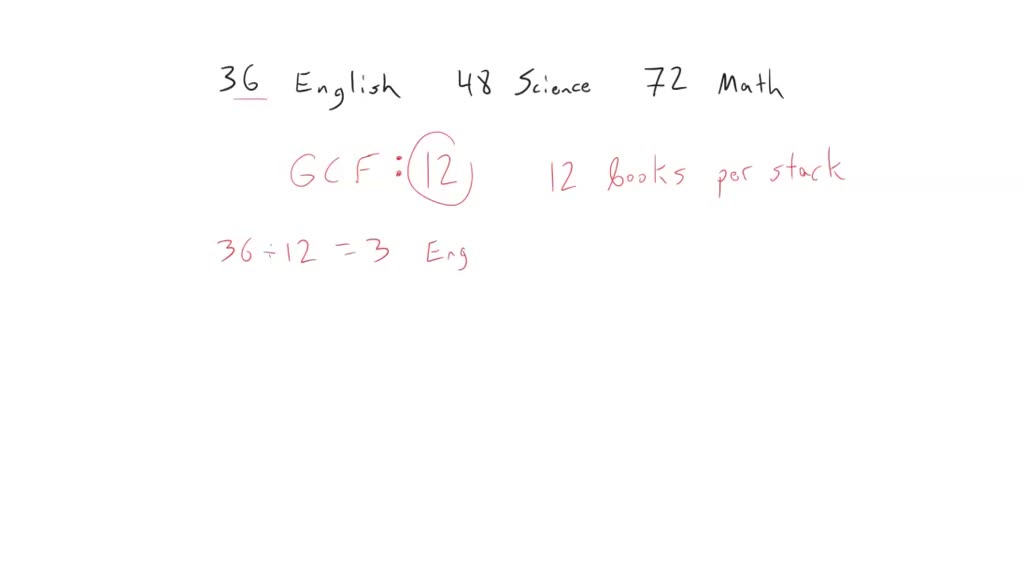 36 English 48 Science 72 Math
GCF: 12 12 books per stack
36 ÷ 12 = 3 Eng